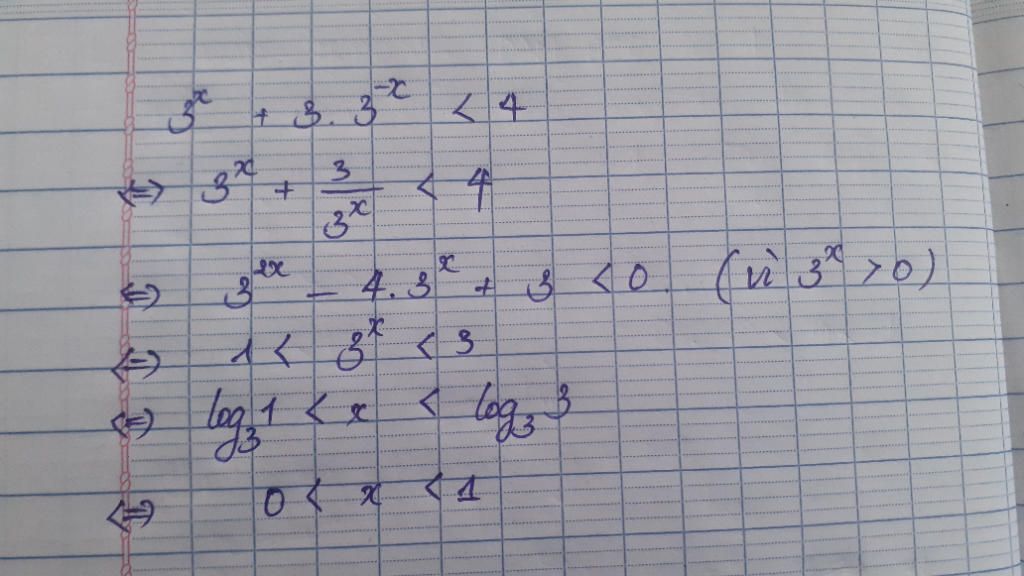 3^x + 3. 3^{-x} < 4
⇔ 3^x + \frac{3}{3^x} < 4
⇔ 3^{2x} - 4. 3^x + 3 < 0. (vì 3^x > 0)
⇔ 1 < 3^x < 3
⇔ log_3 1 < x < log_3 3
⇔ 0 < x < 1